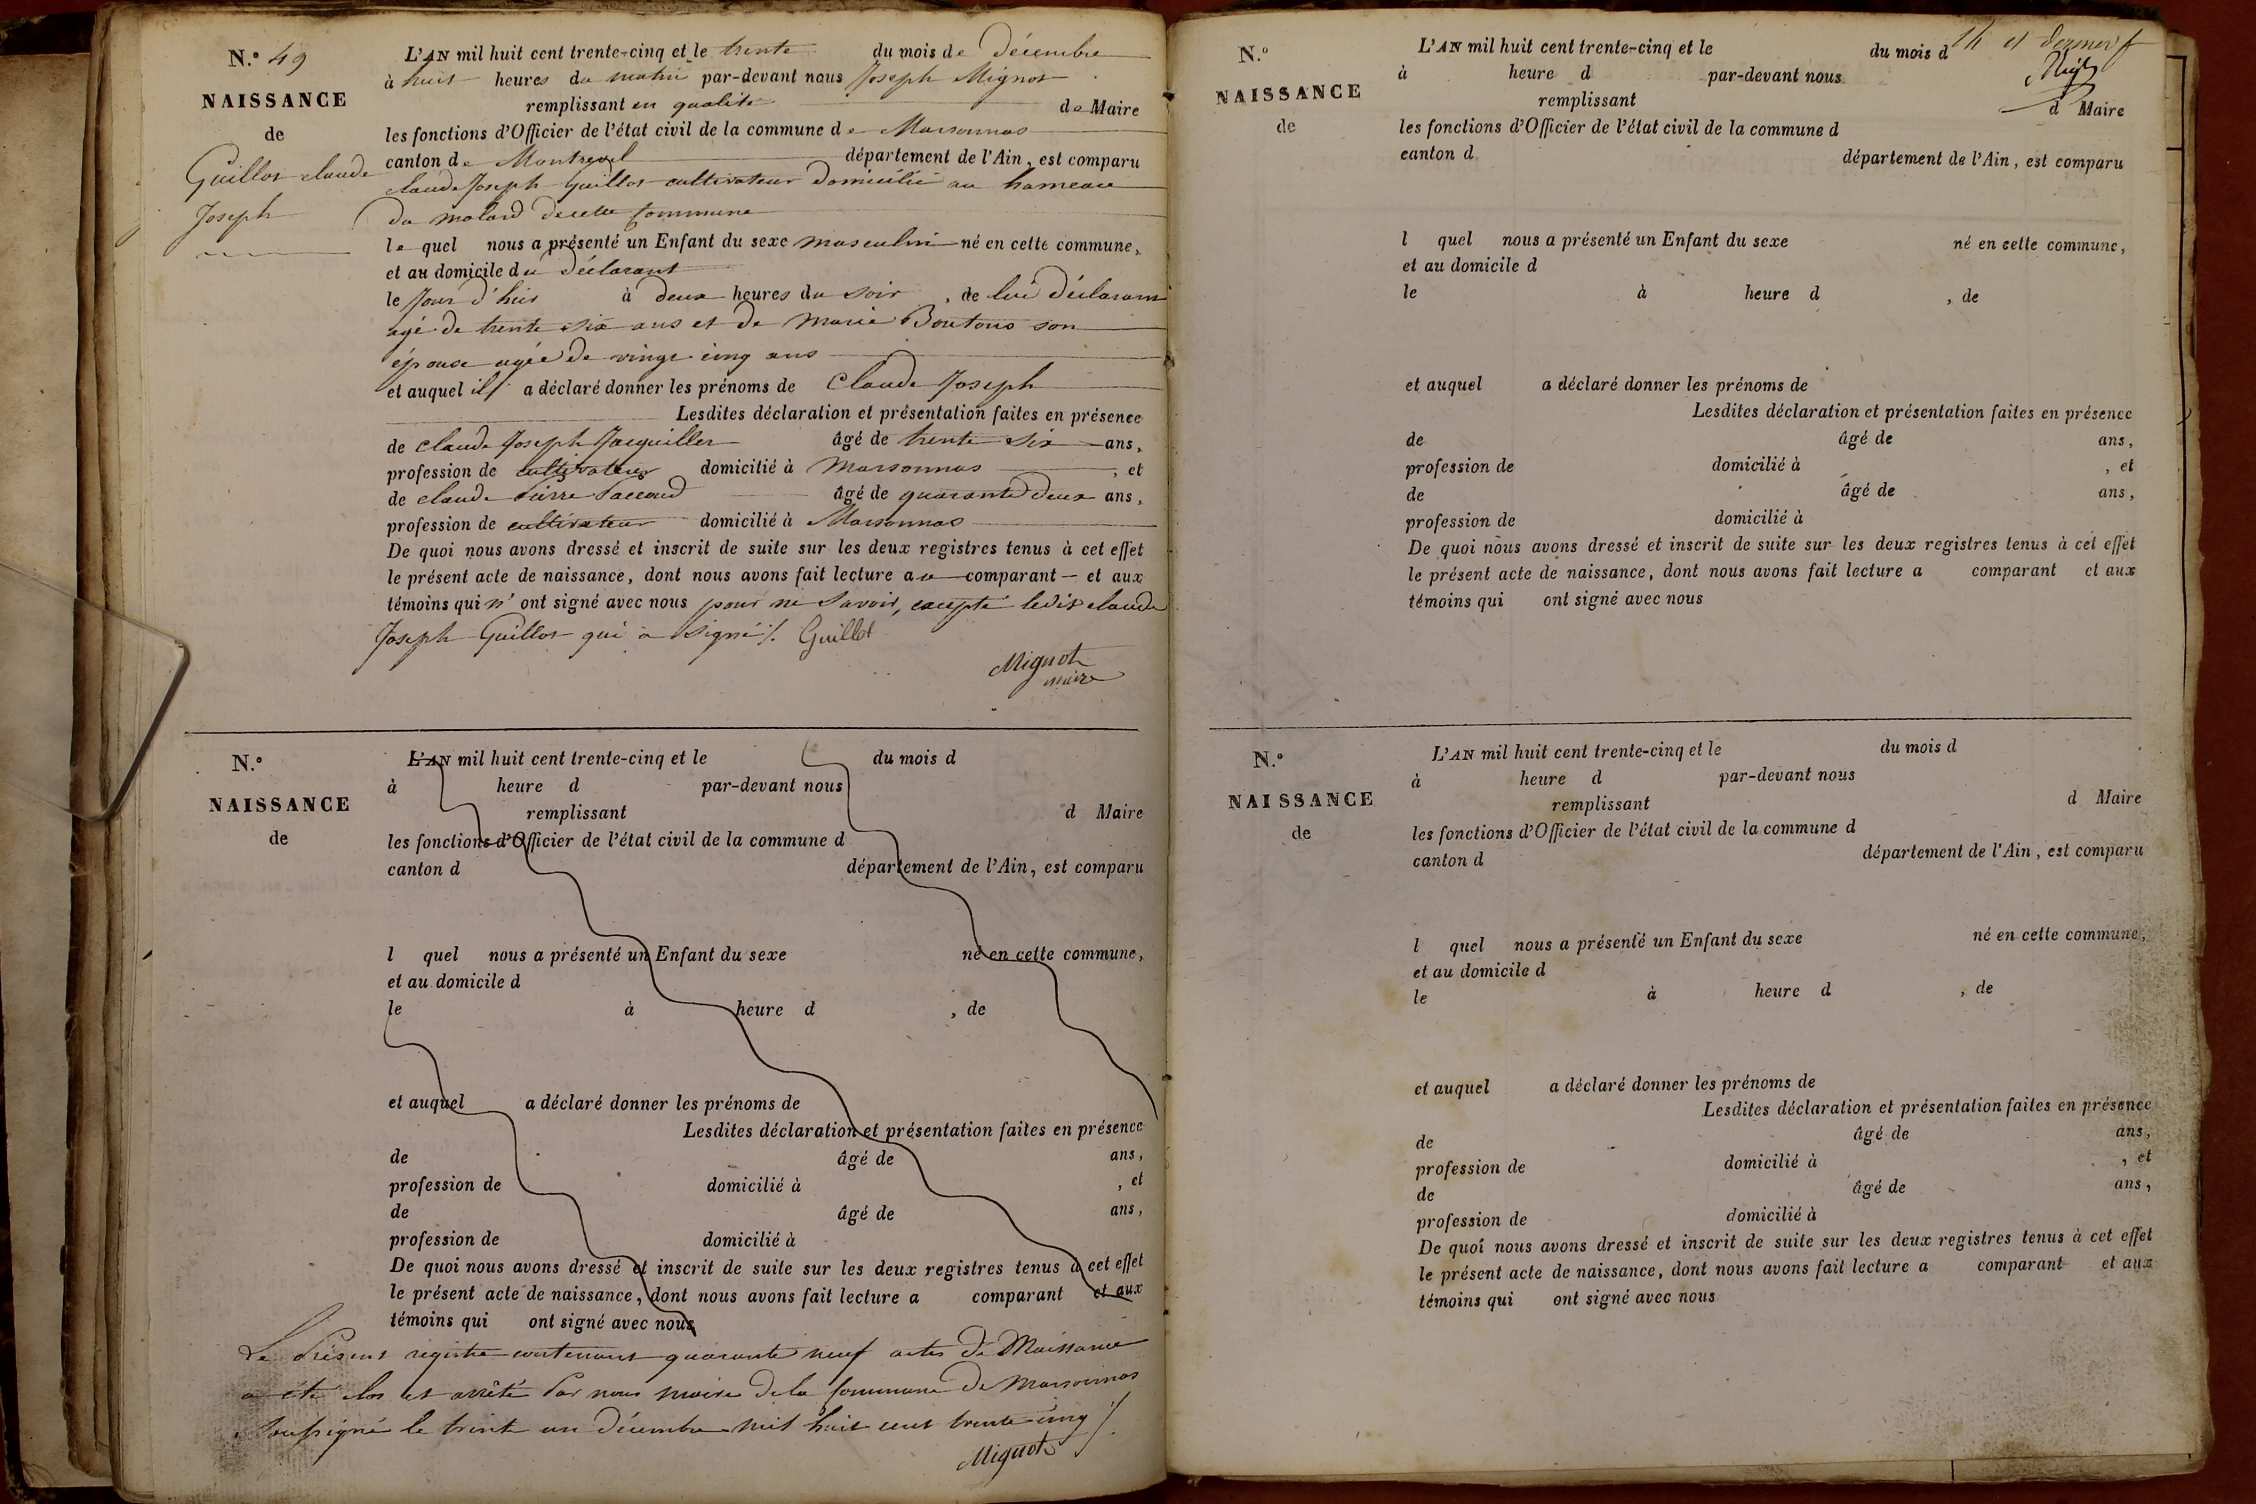 N.° 49
NAISSANCE
de
Guillot claude
Joseph
L'AN mil huit cent trente-cinq et le trente du mois de Décembre
à huit heures du matin par-devant nous Joseph Mignot
remplissant en qualité de Maire
les fonctions d'Officier de l'état civil de la commune de Marsonnas
canton de Montrevel département de l'Ain, est comparu
claude Joseph Guillot cultivateur Domicilié au hameau
du molard decette Commune
le quel nous a présenté un Enfant du sexe masculin né en cette commune,
et au domicile du Déclarant
le Jour d'hier à deux heures du soir, de lui Déclarant
agé de trente six ans et de Marie Boutons son
épouse agée de vingt cinq ans
et auquel il a déclaré donner les prénoms de Claude Joseph
Lesdites déclaration et présentation faites en présence
de claude Joseph Jacquiller âgé de trente six ans,
profession de cultivateur domicilié à Marsonnas, et
de claude Pierre Paccoud âgé de quarante Deux ans,
profession de cultivateur domicilié à Marsonnas
De quoi nous avons dressé et inscrit de suite sur les deux registres tenus à cet effet
le présent acte de naissance, dont nous avons fait lecture au comparant et aux
témoins qui n'ont signé avec nous pour ne Savoir, excepté ledit claude
Joseph Guillot qui a signé ⁒ Guillot
Mignot
maire
N.°
NAISSANCE
de
L'AN mil huit cent trente-cinq et le du mois d
à heure d par-devant nous
remplissant d Maire
les fonctions d'Officier de l'état civil de la commune d
canton d département de l'Ain, est comparu
l quel nous a présenté un Enfant du sexe né en cette commune,
et au domicile d
le à heure d , de
et auquel a déclaré donner les prénoms de
Lesdites déclaration et présentation faites en présence
de âgé de ans,
profession de domicilié à , et
de âgé de ans,
profession de domicilié à
De quoi nous avons dressé et inscrit de suite sur les deux registres tenus à cet effet
le présent acte de naissance, dont nous avons fait lecture a comparant et aux
témoins qui ont signé avec nous
Le Présent registre contenant quarante neuf actes de Naissance
a été clos et arrêté Par nous maire dela Commune de Marsonnas
Soussigné le trente un Décembre mil huit cent trente cinq ⁒
Mignot
et dernier
N.°
NAISSANCE
de
L'AN mil huit cent trente-cinq et le du mois d
à heure d par-devant nous
remplissant d Maire
les fonctions d'Officier de l'état civil de la commune d
canton d département de l'Ain, est comparu
l quel nous a présenté un Enfant du sexe né en cette commune,
et au domicile d
le à heure d , de
et auquel a déclaré donner les prénoms de
Lesdites déclaration et présentation faites en présence
de âgé de ans,
profession de domicilié à , et
de âgé de ans,
profession de domicilié à
De quoi nous avons dressé et inscrit de suite sur les deux registres tenus à cet effet
le présent acte de naissance, dont nous avons fait lecture a comparant et aux
témoins qui ont signé avec nous
N.°
NAISSANCE
de
L'AN mil huit cent trente-cinq et le du mois d
à heure d par-devant nous
remplissant d Maire
les fonctions d'Officier de l'état civil de la commune d
canton d département de l'Ain, est comparu
l quel nous a présenté un Enfant du sexe né en cette commune,
et au domicile d
le à heure d , de
et auquel a déclaré donner les prénoms de
Lesdites déclaration et présentation faites en présence
de âgé de ans,
profession de domicilié à , et
de âgé de ans,
profession de domicilié à
De quoi nous avons dressé et inscrit de suite sur les deux registres tenus à cet effet
le présent acte de naissance, dont nous avons fait lecture a comparant et aux
témoins qui ont signé avec nous